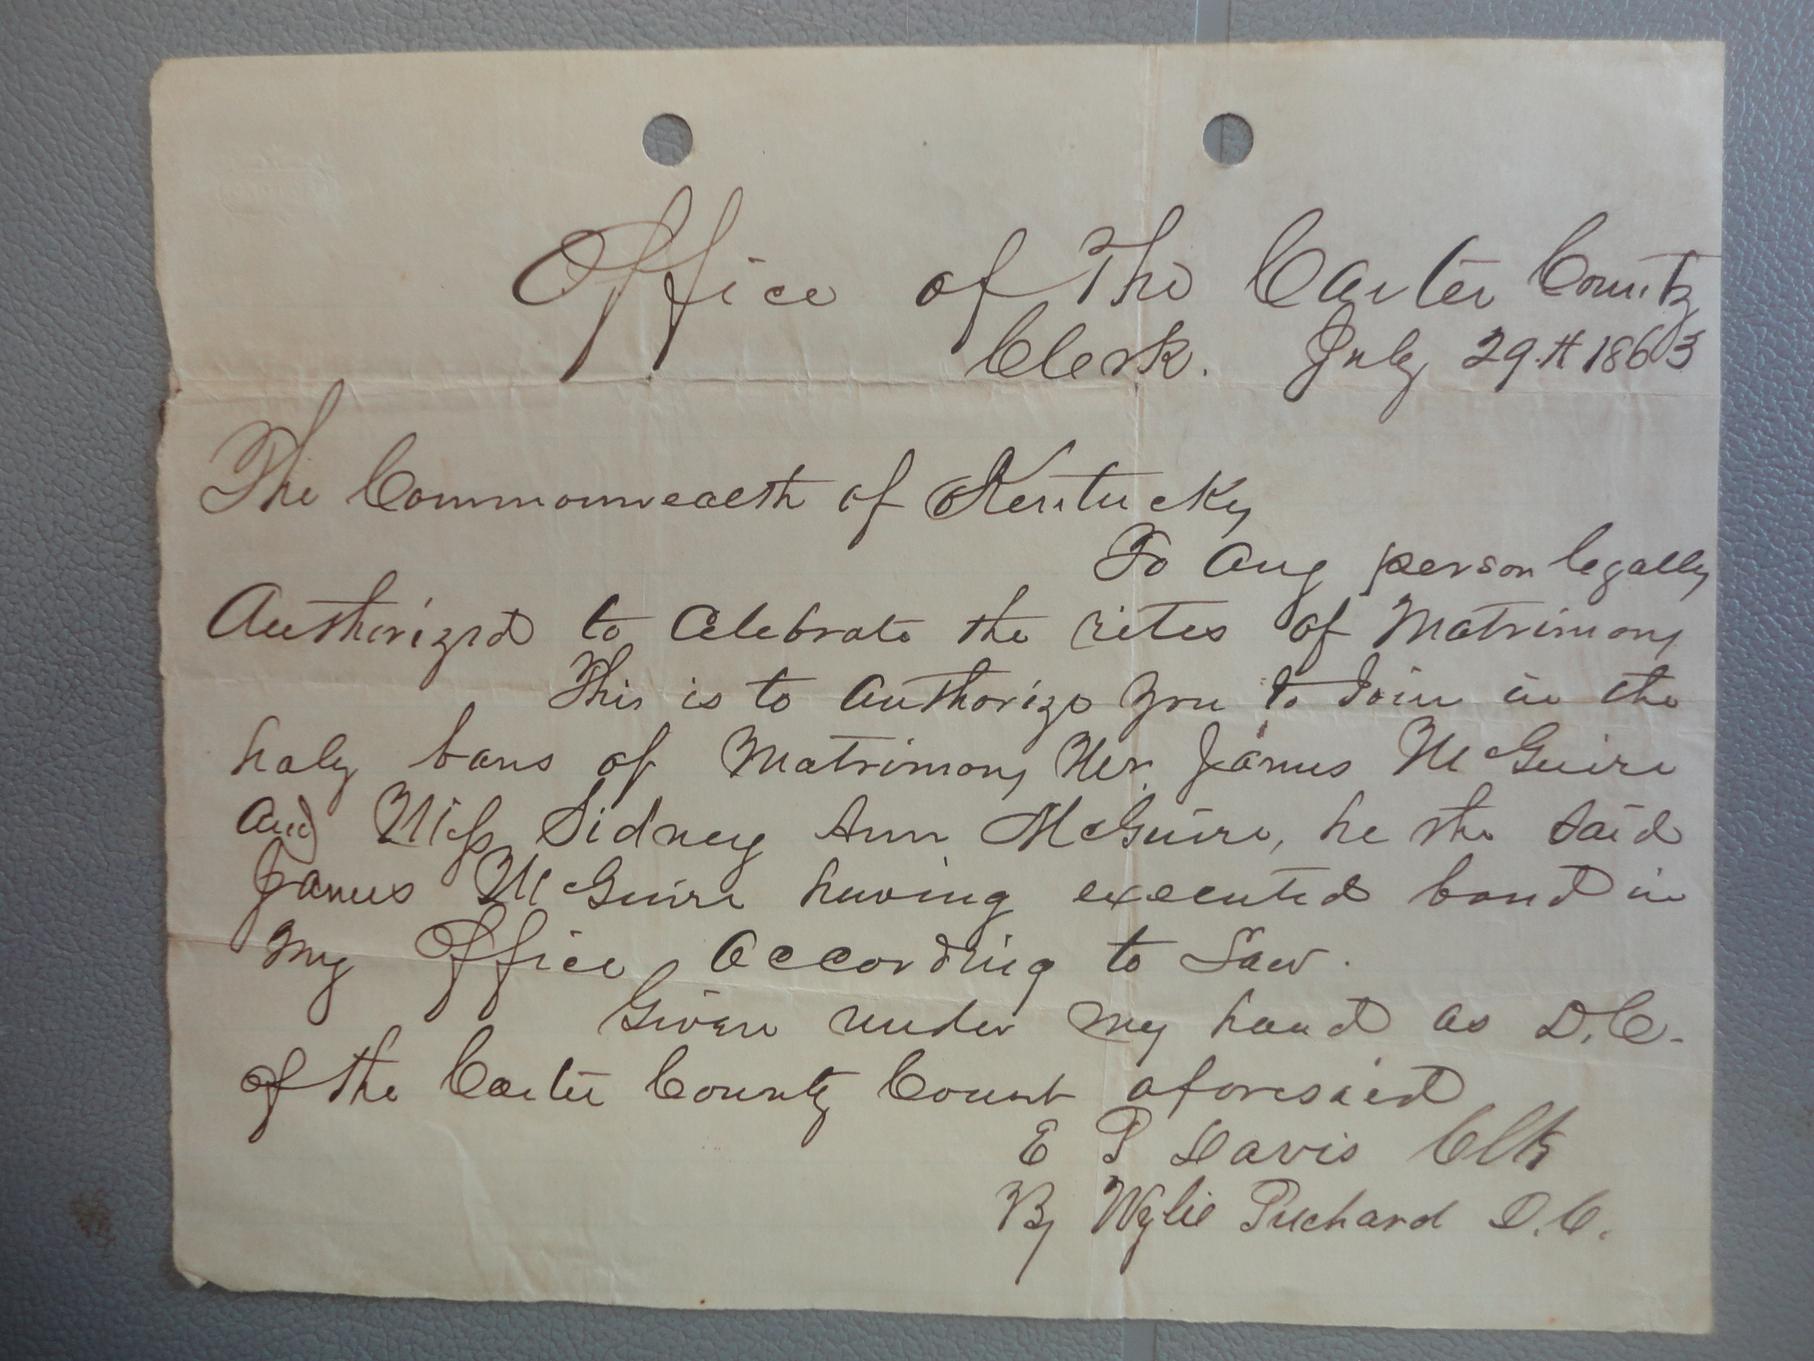 Office of The Carter County
Clerk. July 29th 1863
The Commonwealth of Kentucky
To any person legally
Authorized to Celebrate the rites of Matrimony
This is to authorize you to Join in the
holy bans of Matrimony Mr. James McGuire
And Miss Sidney Ann McGuire, he the said
James McGuire having executed bond in
my Office According to Law.
Given under my hand as D.C.
of the Carter County Count aforesaid
E P Davis Clk
By Wylie Prichard D.C.